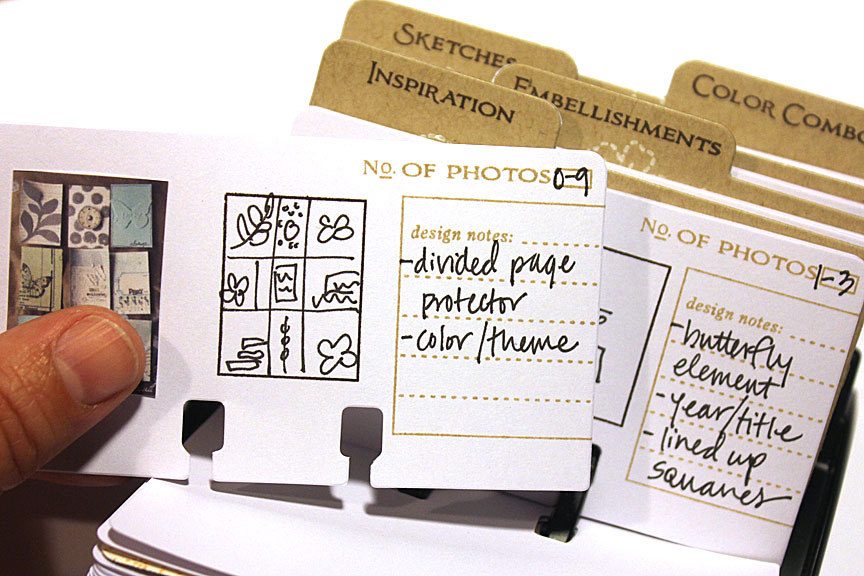 SKETCHES
INSPIRATION
EMBELLISHMENTS
COLOR COMBO
No. OF PHOTOS 0-9
design notes:
-divided page
protector
-color/theme
No. OF PHOTOS 1-3
design notes:
-butterfly
element
-year/title
-lined up
squares